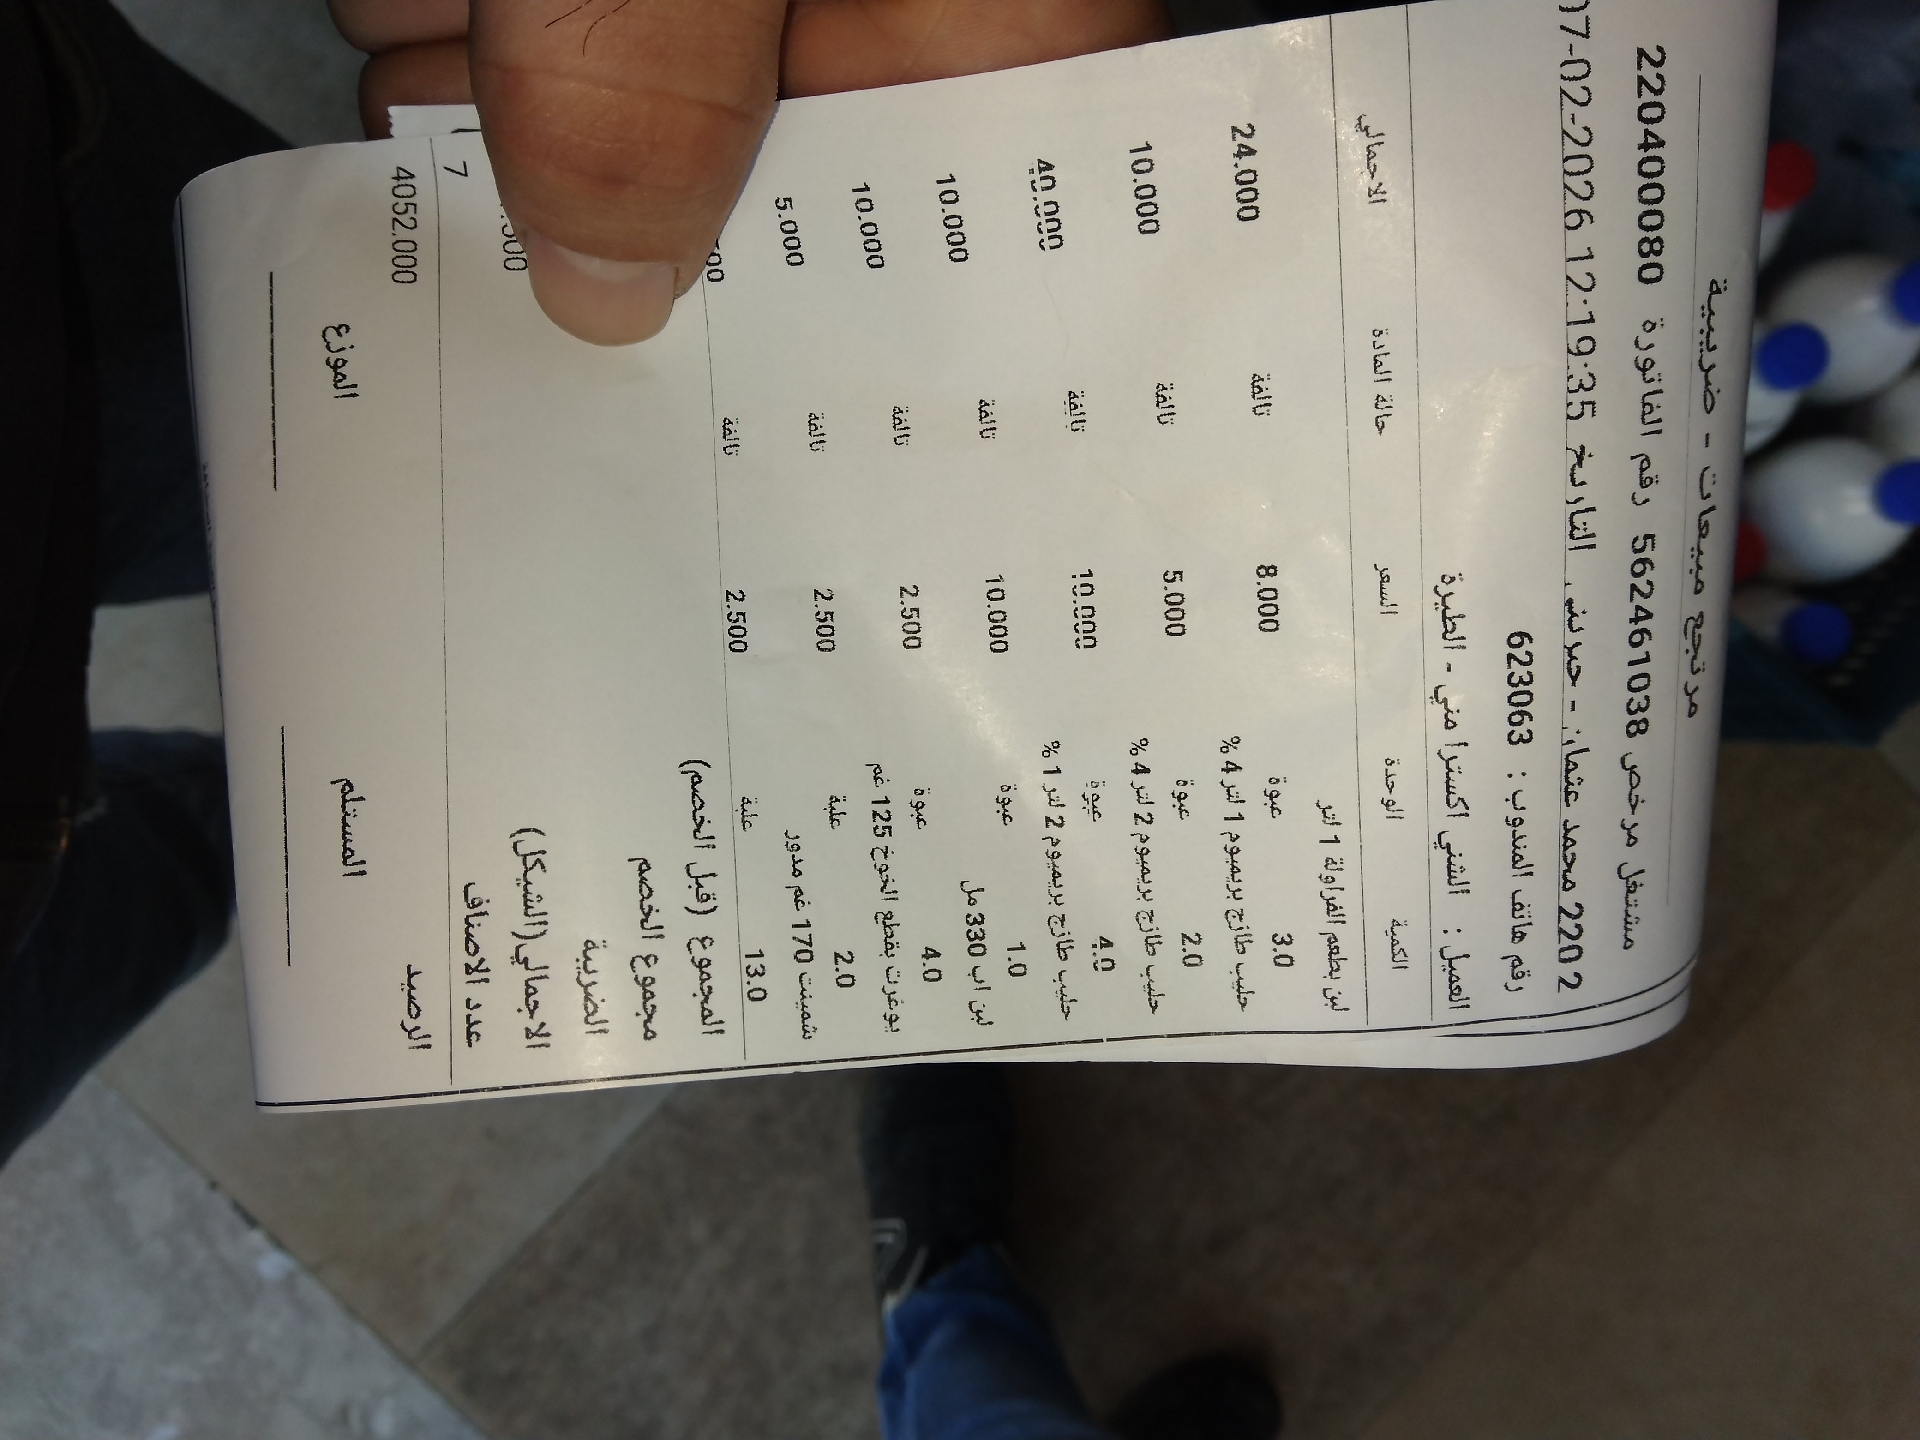 مرتجع مبيعات - ضريبية
مشتغل مرخص 562461038 رقم الفاتورة 220400080
2202 محمد عثمان - جبريني التاريخ 07-02-2026 12:19:35
رقم هاتف المندوب : 623063
العميل : الشني اكسترا مني - الطيرة
الكمية الوحدة السعر حالة المادة الاجمالي
لبن بطعم الفراولة 1 لتر
3.0 عبوة 8.000 تالفة 24.000
حليب طازج بريميوم 1 لتر 4 %
2.0 عبوة 5.000 تالفة 10.000
حليب طازج بريميوم 2 لتر 4 %
4.0 عبوة 10.000 تالفة 40.000
حليب طازج بريميوم 2 لتر 1 %
1.0 عبوة 10.000 تالفة 10.000
لبن اب 330 مل
4.0 عبوة 2.500 تالفة 10.000
يوغرت بقطع الخوخ 125 غم
2.0 علبة 2.500 تالفة 5.000
شمينت 170 غم مدور
13.0 علبة 2.500 تالفة
المجموع (قبل الخصم)
مجموع الخصم
الضريبة
الاجمالي(الشيكل)
عدد الاصناف 7
الرصيد 4052.000
المستلم الموزع